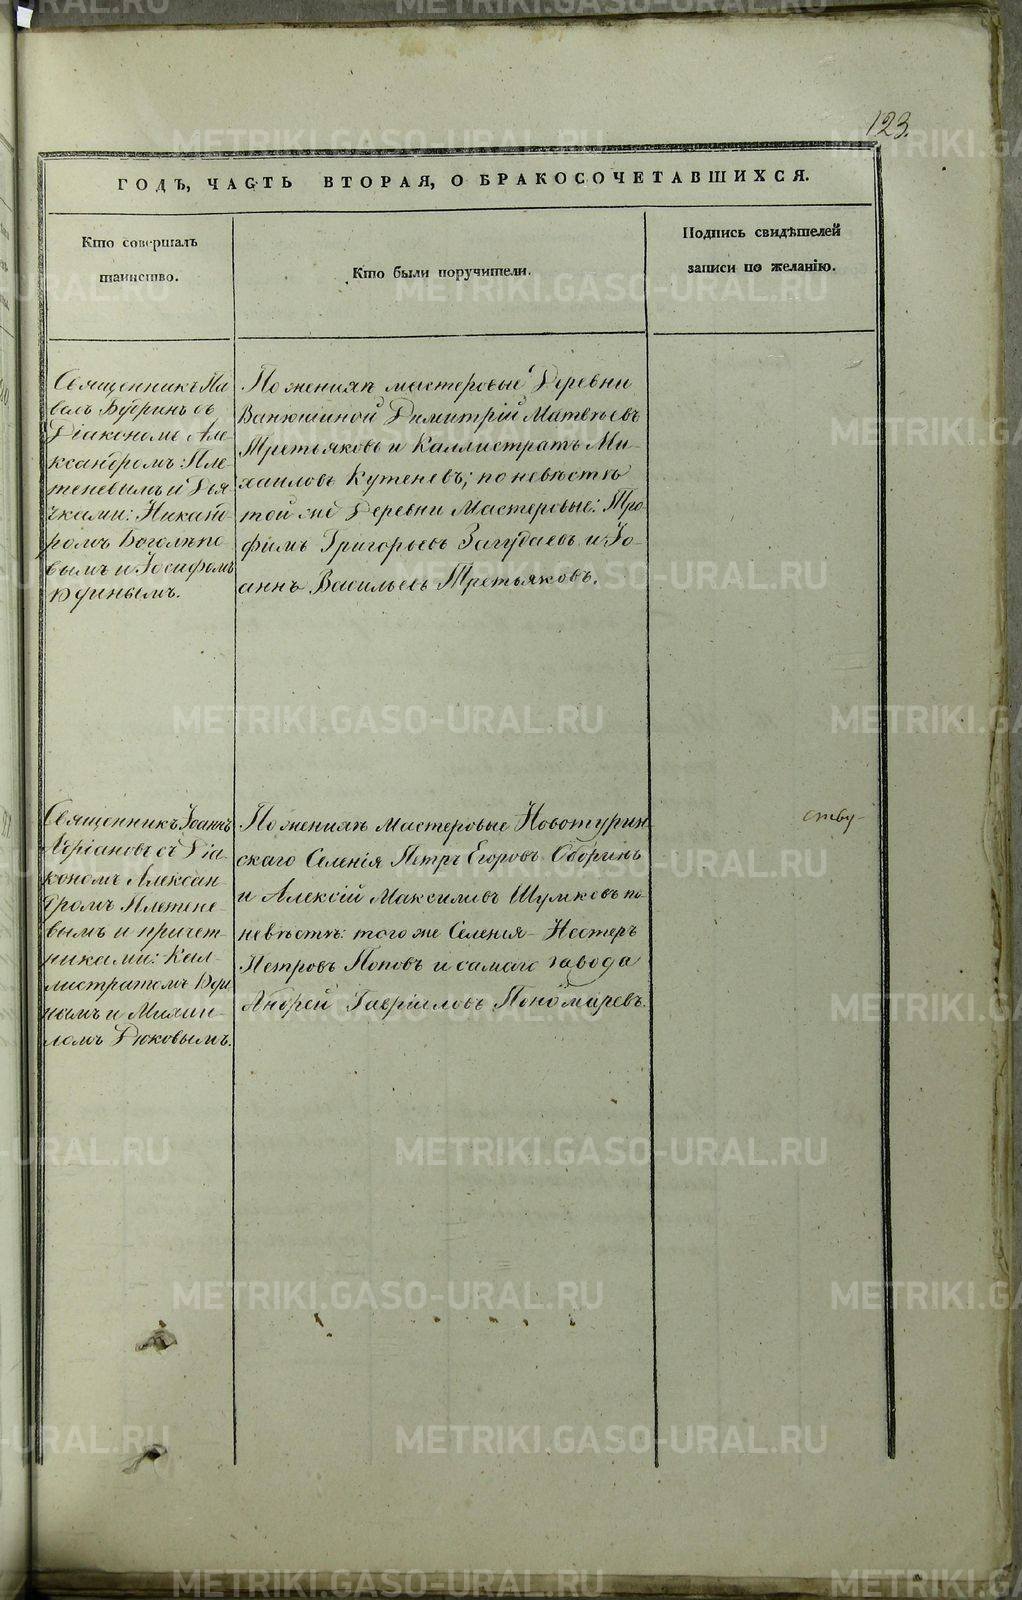 123.
ГОДЪ, ЧАСТЬ ВТОРАЯ, О БРАКОСОЧЕТАВШИХСЯ.
Кто совершалъ
таинство.
Кто были поручители.
Подпись свидѣтелей
записи по желанію.
Священникъ Па
велъ Бубринъ съ
Діакономъ Але-
ксандромъ Пле-
теневымъ и Дья
чками: Никанд
ромъ Боголѣпо-
вымъ и Іосифомъ
Удинымъ.
По женихѣ мастеровые Деревни
Ванюшиной Димитрій Матвѣевъ
Третьяковъ и Каллистратъ Ми-
хаиловъ Кутеневъ; по невѣстѣ
той же Деревни Мастеровые: Тро
фимъ Григорьевъ Загудаевъ и Іо-
аннъ Васильевъ Третьяковъ.
Священникъ Іоаннъ
Адріановъ съ Діа-
кономъ Алексан-
дромъ Плетене-
вымъ и причет-
никами: Кал-
листратомъ Уди
нымъ и Михаи-
ломъ Дюковымъ.
По женихѣ Мастеровые Новотурин-
скаго Селенія Петръ Егоровъ Оборинъ
и Алексій Максимовъ Шумковъ по
невѣстѣ: того же Селенія Нестеръ
Петровъ Поповъ и самаго завода
Андрей Гавріиловъ Пономаревъ.
ству-
METRIKI.GASO-URAL.RU